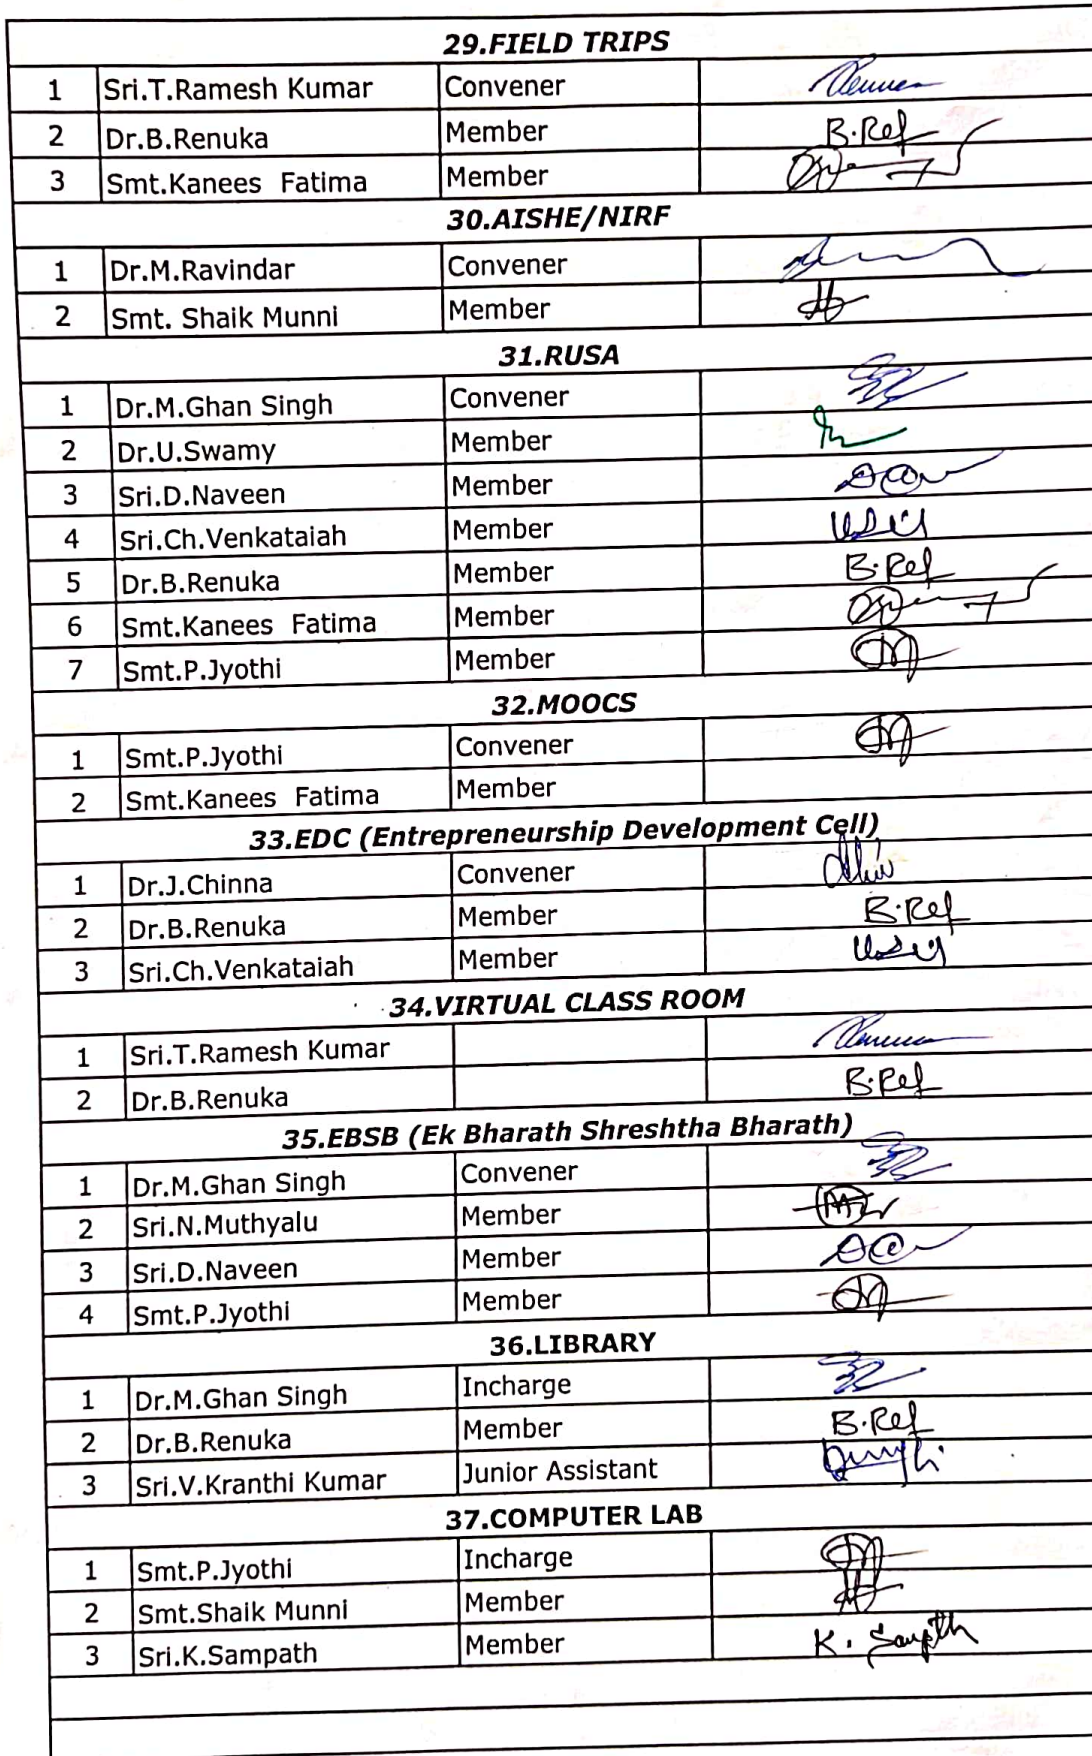 29.FIELD TRIPS
1 Sri.T.Ramesh Kumar Convener
2 Dr.B.Renuka Member B.Ref
3 Smt.Kanees Fatima Member
30.AISHE/NIRF
1 Dr.M.Ravindar Convener
2 Smt. Shaik Munni Member
31.RUSA
1 Dr.M.Ghan Singh Convener
2 Dr.U.Swamy Member
3 Sri.D.Naveen Member
4 Sri.Ch.Venkataiah Member
5 Dr.B.Renuka Member B.Ref
6 Smt.Kanees Fatima Member
7 Smt.P.Jyothi Member
32.MOOCS
1 Smt.P.Jyothi Convener
2 Smt.Kanees Fatima Member
33.EDC (Entrepreneurship Development Cell)
1 Dr.J.Chinna Convener
2 Dr.B.Renuka Member B.Ref
3 Sri.Ch.Venkataiah Member
34.VIRTUAL CLASS ROOM
1 Sri.T.Ramesh Kumar
2 Dr.B.Renuka B.Ref
35.EBSB (Ek Bharath Shreshtha Bharath)
1 Dr.M.Ghan Singh Convener
2 Sri.N.Muthyalu Member
3 Sri.D.Naveen Member
4 Smt.P.Jyothi Member
36.LIBRARY
1 Dr.M.Ghan Singh Incharge
2 Dr.B.Renuka Member B.Ref
3 Sri.V.Kranthi Kumar Junior Assistant
37.COMPUTER LAB
1 Smt.P.Jyothi Incharge
2 Smt.Shaik Munni Member
3 Sri.K.Sampath Member K. Sampth